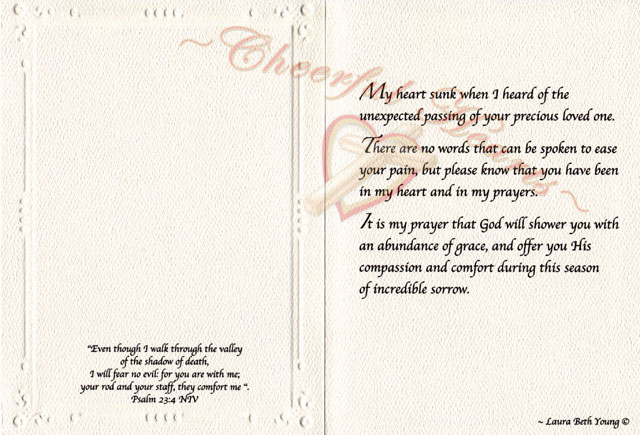 ~ Cheerful Hearts ~
"Even though I walk through the valley
of the shadow of death,
I will fear no evil: for you are with me;
your rod and your staff, they comfort me ".
Psalm 23:4 NIV
My heart sunk when I heard of the
unexpected passing of your precious loved one.
There are no words that can be spoken to ease
your pain, but please know that you have been
in my heart and in my prayers.
It is my prayer that God will shower you with
an abundance of grace, and offer you His
compassion and comfort during this season
of incredible sorrow.
~ Laura Beth Young ©